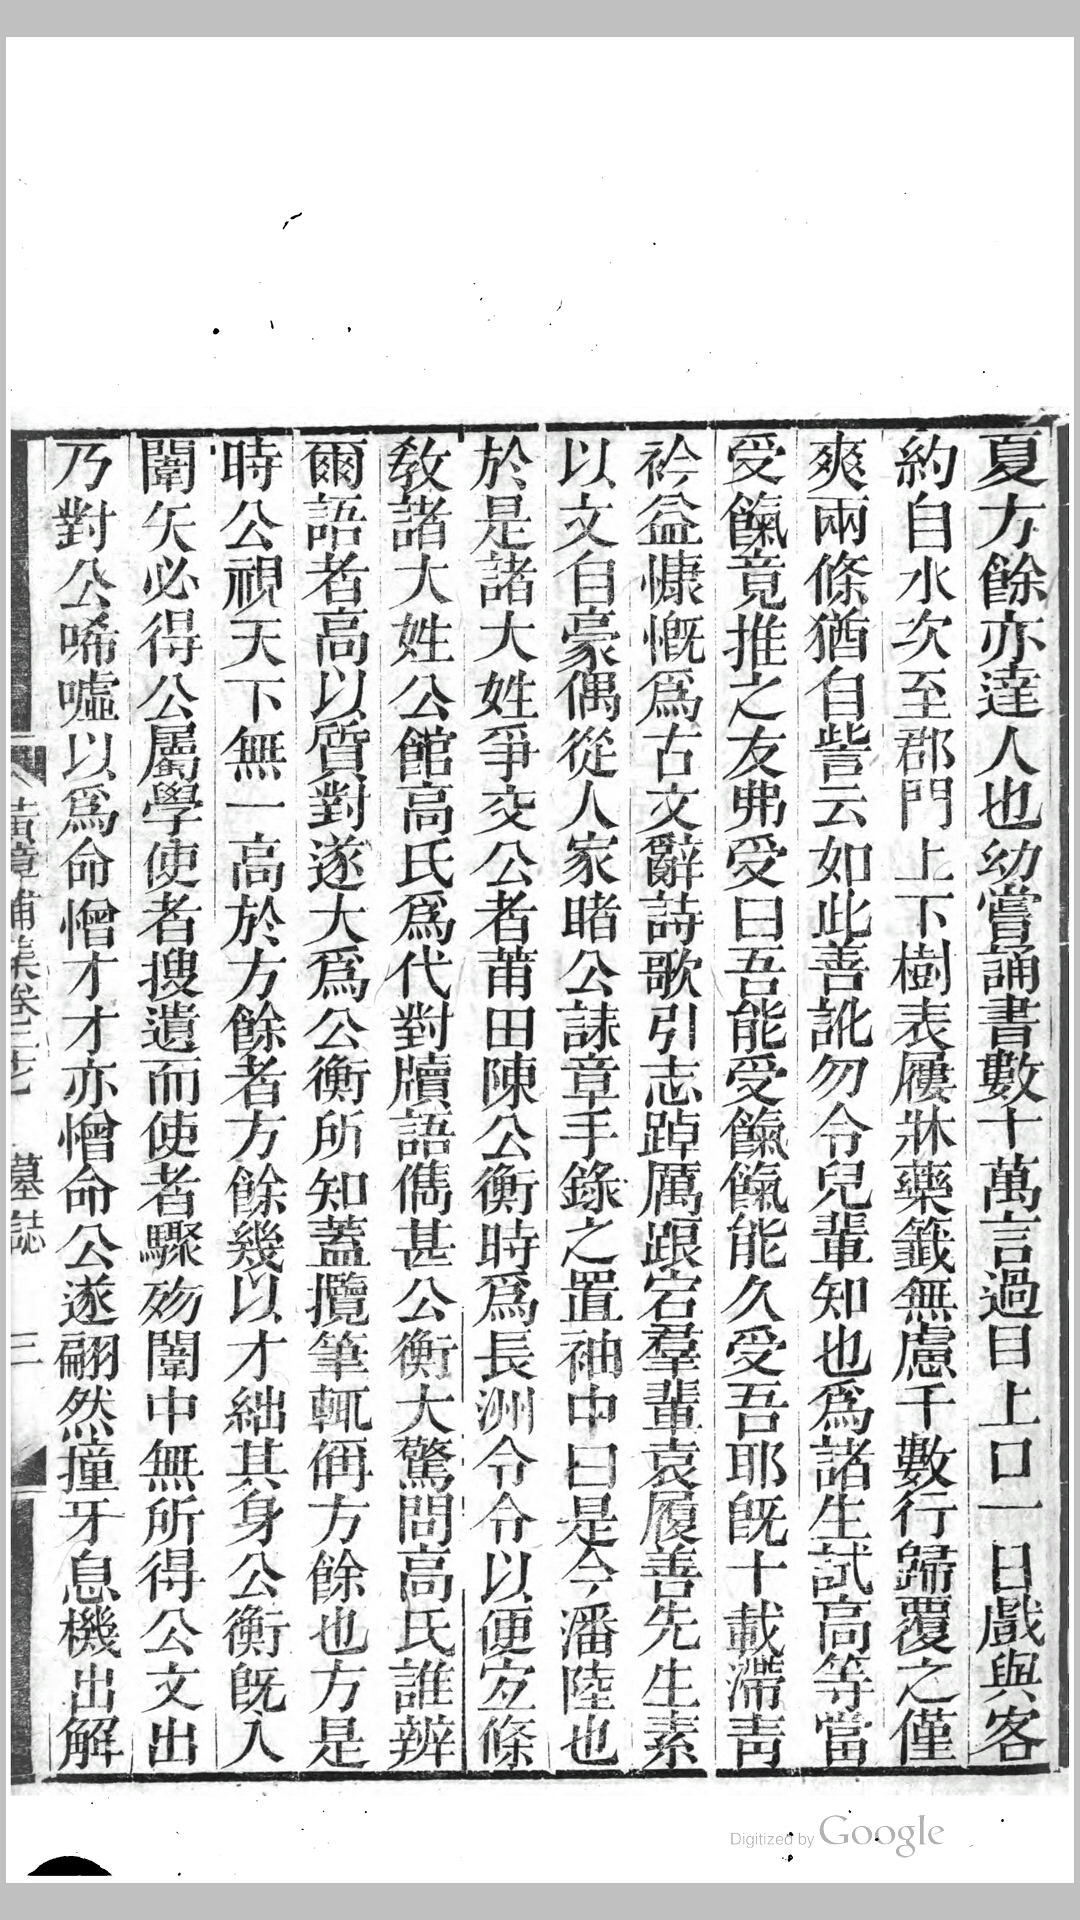 夏方餘亦達人也幼嘗誦書數十萬言過目上口一日戲與客
約自水次至郡門上下樹表屨牀藥籤無慮千數行歸覆之僅
爽兩條猶自訾云如此善訛勿令兒輩知也爲諸生試高等當
受餼竟推之友弗受曰吾能受餼餼能久受吾耶旣十載滯靑
衿益慷慨爲古文辭詩歌引志踔厲踉宕羣輩袁履善先生素
以文自豪偶從人家睹公誄章手錄之置袖中曰是今潘陸也
於是諸大姓爭交公者莆田陳公衡時爲長洲令令以便宐條
敎諸大姓公館高氏爲代對牘語儁甚公衡大驚問高氏誰辨
爾語者高以質對遂大爲公衡所知蓋攬筆輒偁方餘也方是
時公視天下無一高於方餘者方餘幾以才絀其身公衡旣入
闈矢必得公屬學使者搜遺而使者驟歾闈中無所得公文出
乃對公唏噓以爲命憎才才亦憎命公遂翩然撞牙息機出解
黃章補集卷三七 墓誌 三
Digitized by Google